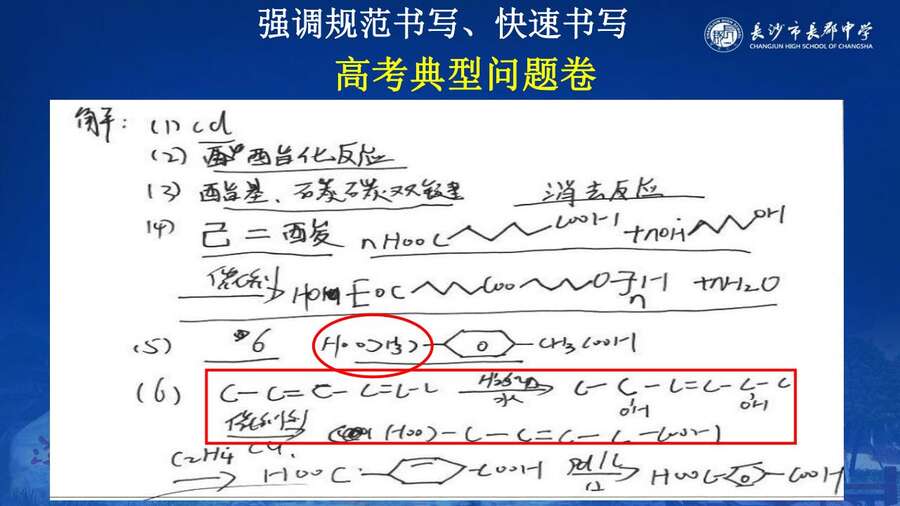 强调规范书写、快速书写
长沙市长郡中学
CHANGJUN HIGH SCHOOL OF CHANGSHA
高考典型问题卷
解：(1) cd
(2) 酯化反应
(3) 酯基、碳碳双键 消去反应
(4) 己二酸 nHOOC COOH +nOH OH
催化剂 HO OC COO O H n +nH2O
(5) 6 CH3COOH
(6) C-C=C-C=C-C 水 C-C-C=C-C-C OH OH
催化剂 -C-C=C-C-COOH
C2H4 HOOC COOH Pd/C Δ HOOC COOH